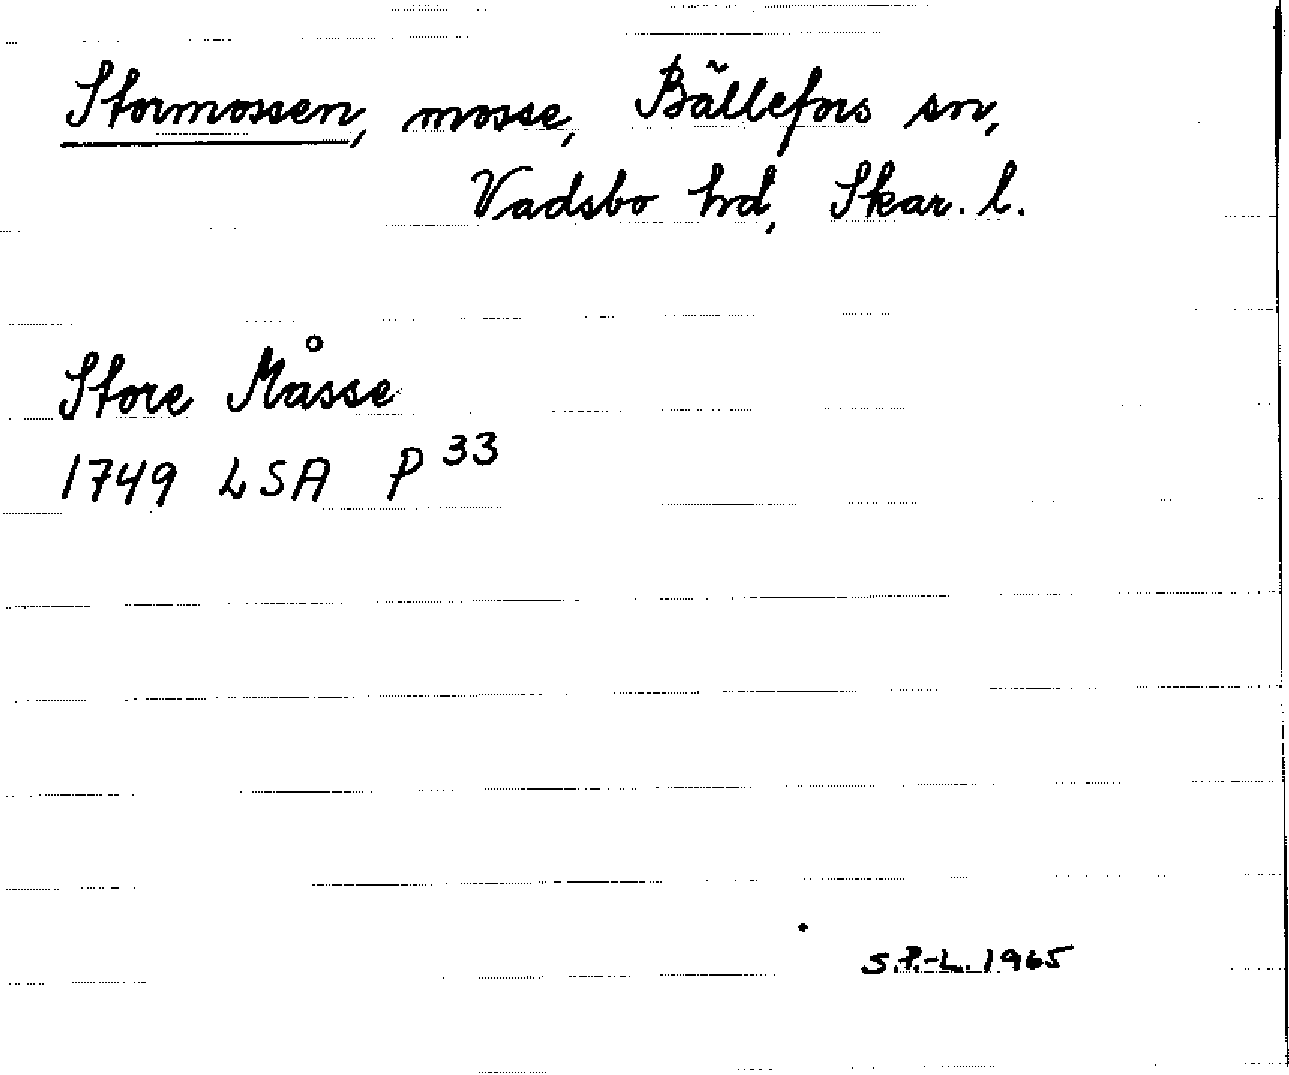 Stormossen, mosse, Bällefors sn,
Vadsbo hd, Skar. l.
Store Måsse
1749 LSA P 33
S.P.-L. 1965